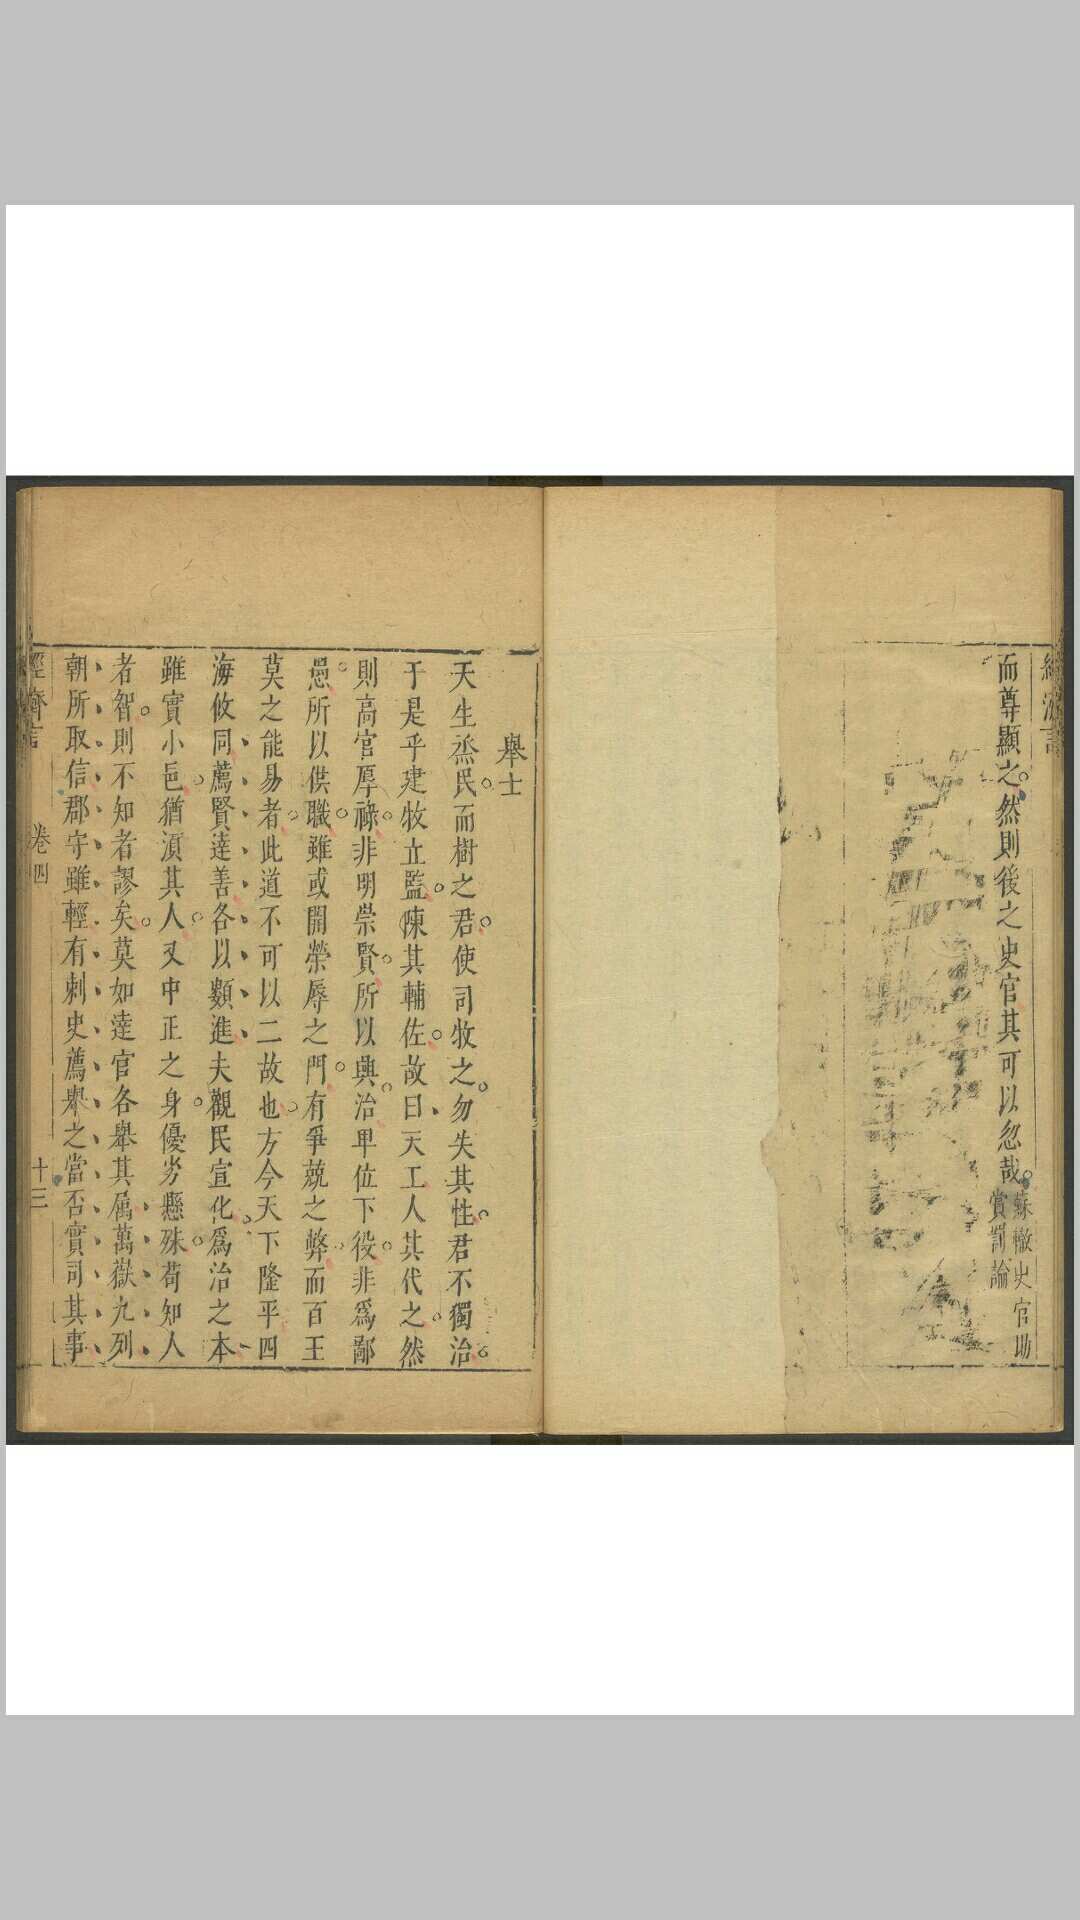 而尊顯之然則後之史官其可以忽哉蘇轍史官助
賞罰論
舉士
天生烝民而樹之君使司牧之勿失其性君不獨治
于是乎建牧立監陳其輔佐故曰天工人其代之然
則高官厚祿非明崇賢所以興治卑位下役非爲鄙
愚所以供職雖或開榮辱之門有爭兢之弊而百王
莫之能易者此道不可以二故也方今天下隆平四
海攸同薦賢達善各以類進夫觀民宣化爲治之本
雖實小邑猶須其人又中正之身優劣懸殊苟知人
者智則不知者謬矣莫如達官各舉其属萬嶽九列
朝所取信郡守雖輕有刺史薦舉之當否實司其事
經濟言
卷四
十三